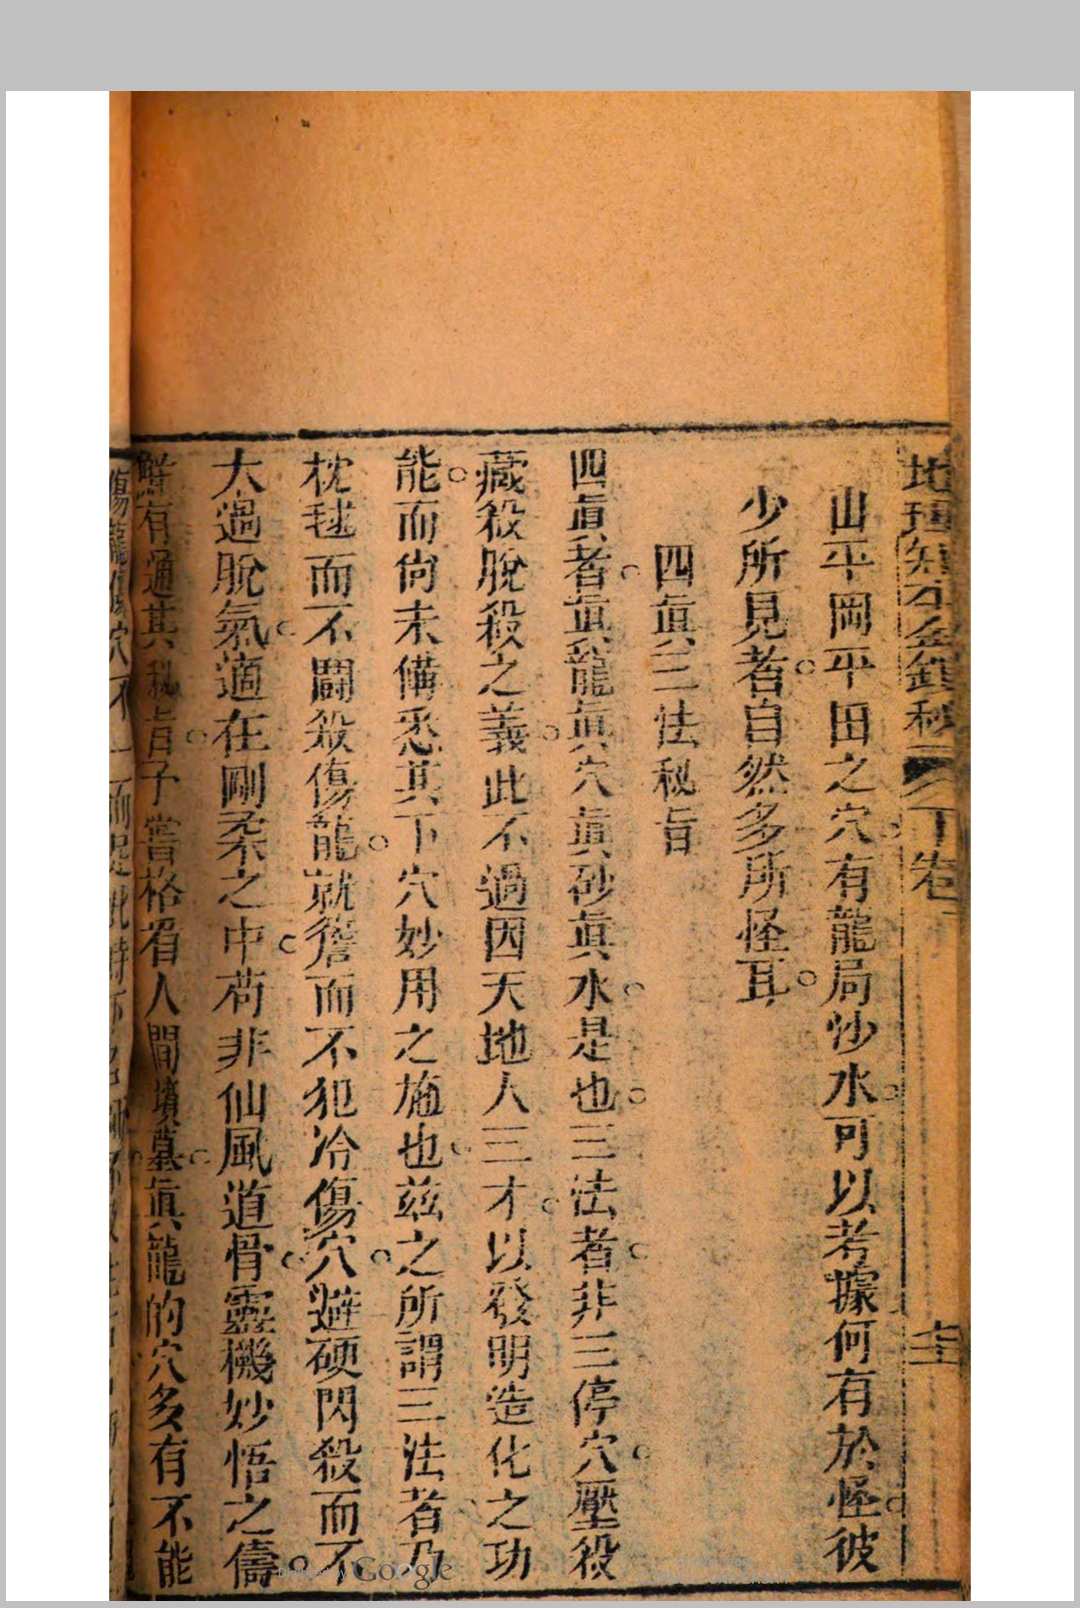 地理知本金鎖秘 下卷
山平岡平田之穴有龍局沙水可以考據何有於怪彼
少所見者自然多所怪耳
四眞三法秘旨
四眞者眞龍眞穴眞砂眞水是也三法者非三停穴壓殺
藏殺脫殺之義此不過因天地人三才以發明造化之功
能而尙未備悉其下穴妙用之施也茲之所謂三法者乃
枕毬而不鬪殺傷龍就簷而不犯冷傷穴避硬閃殺而不
大過脫氣適在剛柔之中苟非仙風道骨靈機妙悟之儔
鮮有通其秘旨予嘗格省人間墳墓眞龍的穴多有不能
傷龍傷穴不
Google